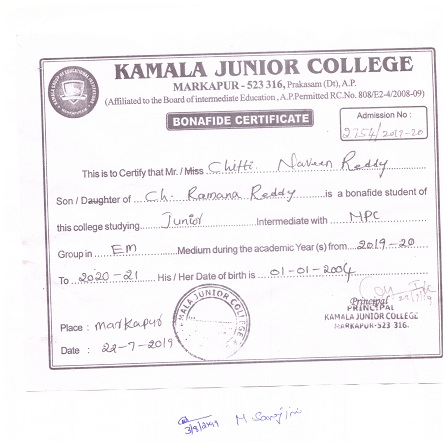 KAMALA JUNIOR COLLEGE
MARKAPUR - 523 316, Prakasam (Dt), A.P.
(Affiliated to the Board of intermediate Education, A.P. Permitted RC.No. 808/E2-4/2008-09)
BONAFIDE CERTIFICATE
Admission No :
2754/2019-20
This is to Certify that Mr. / Miss Chitti. Naveen Reddy
Son / Daughter of Ch. Ramana Reddy is a bonafide student of
this college studying Junior Intermediate with MPC
Group in EM Medium during the academic Year(s) from 2019-20
To 2020-21 His / Her Date of birth is 01-01-2004
Principal
PRINCIPAL
KAMALA JUNIOR COLLEGE
MARKAPUR-523 316.
KAMALA JUNIOR COLLEGE
Place : Markapur
Date : 22-7-2019